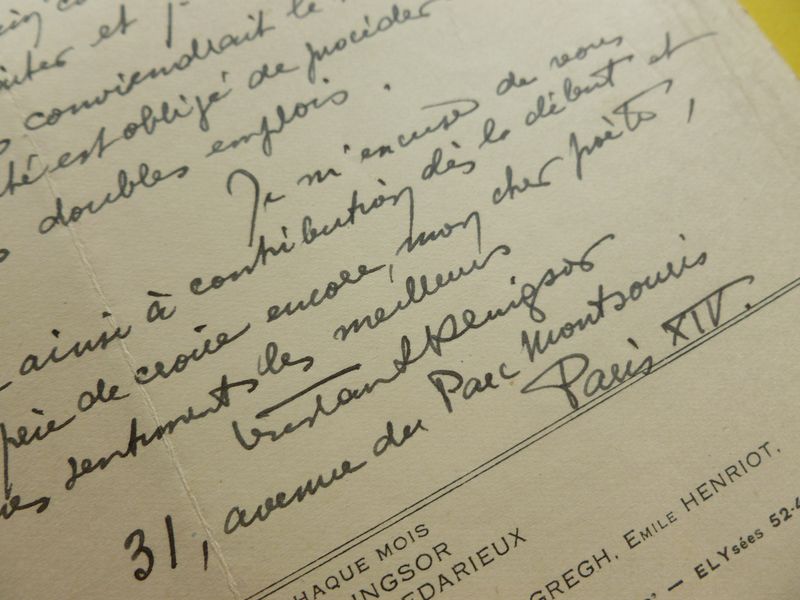 et
conviendrait le
té est obligé de procéder
doubles emplois.
Je m'excuse de vous
ainsi à contribution dès le début et
de croire encore, mon cher poète,
sentiments les meilleurs
Tristan Klingsor
31, avenue du Parc Montsouris
Paris XIV.
HAQUE MOIS
INGSOR
EDARIEUX
GREGH, EMILE HENRIOT,
— ELYsées 52-4